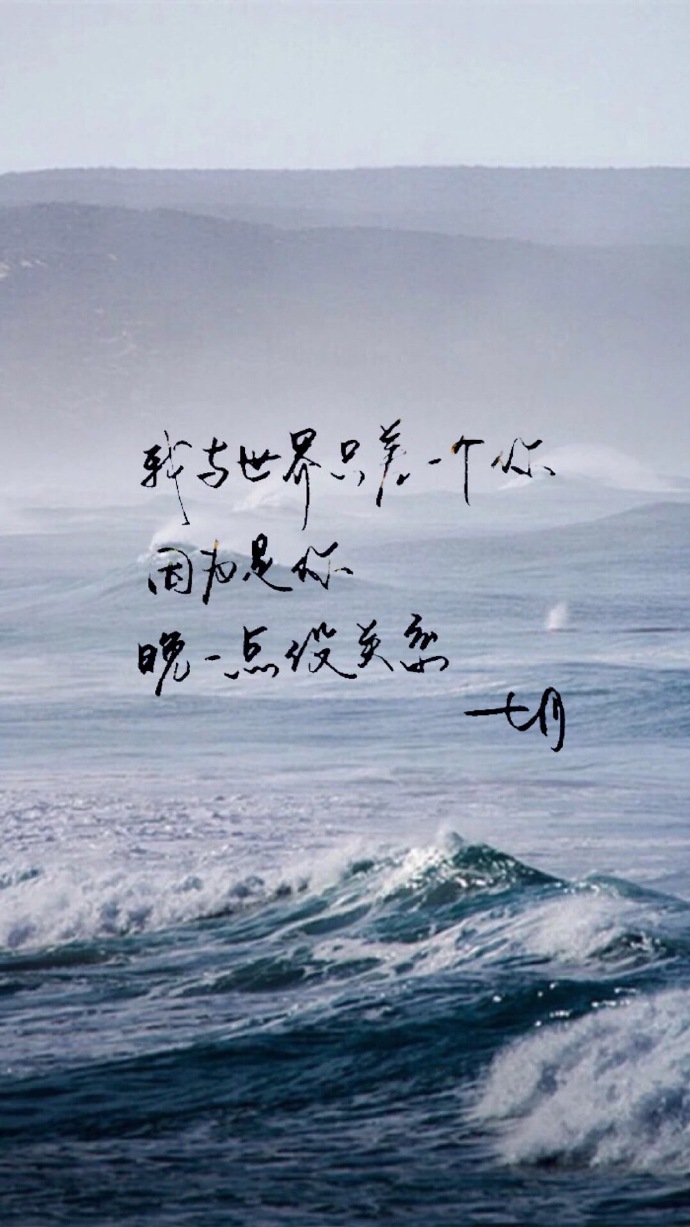 我与世界只差一个你
因为是你
晚一点没关系
七月